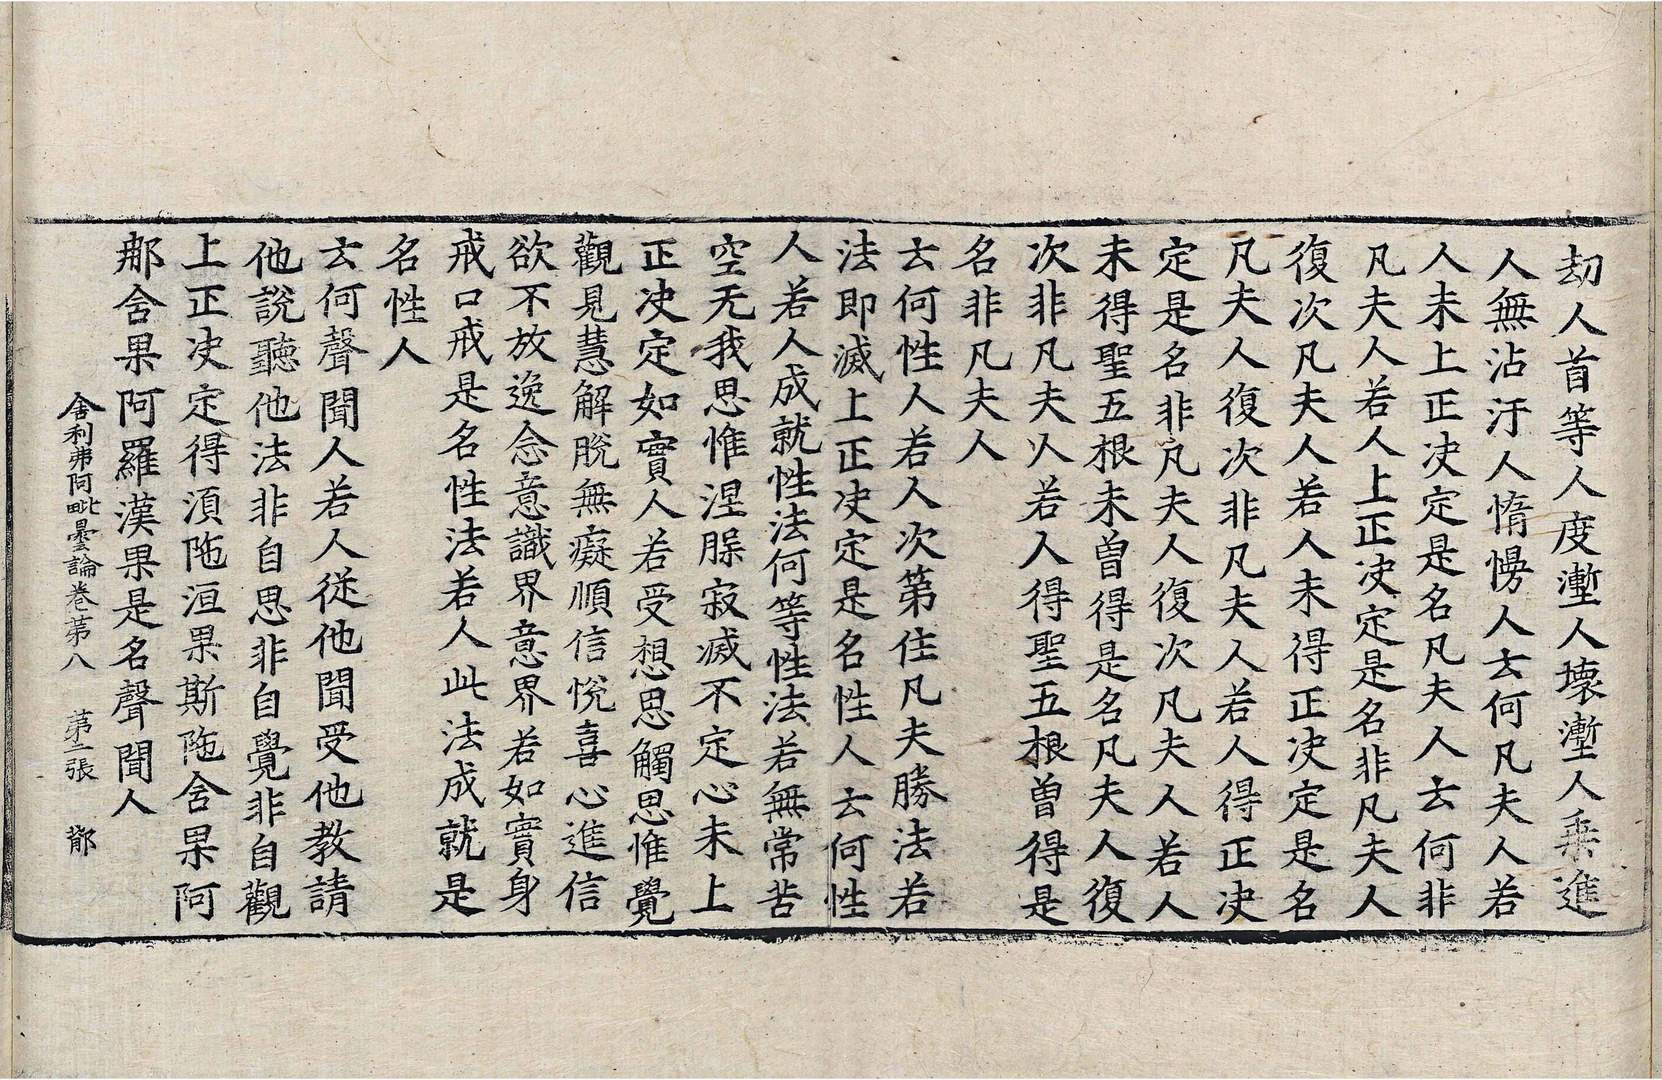 劫人首等人度壍人壞壍人乗進
人無沾汙人憜慢人云何凡夫人若
人未上正决定是名凡夫人云何非
凡夫人若人上正决定是名非凡夫人
復次凡夫人若人未得正决定是名
凡夫人復次非凡夫人若人得正决
定是名非凡夫人復次凡夫人若人
未得聖五根未曽得是名凡夫人復
次非凡夫人若人得聖五根曽得是
名非凡夫人
云何性人若人次第住凡夫勝法若
法即滅上正决定是名性人云何性
人若人成就性法何等性法若無常苦
空无我思惟涅槃寂滅不定心未上
正决定如實人若受想思觸思惟覺
觀見慧解脫無癡順信悅喜心進信
欲不放逸念意識界意界若如實身
戒口戒是名性法若人此法成就是
名性人
云何聲聞人若人從他聞受他教請
他說聽他法非自思非自覺非自觀
上正决定得湏陁洹果斯陁含果阿
那含果阿羅漢果是名聲聞人
舍利弗阿毗曇論卷第八 第二張